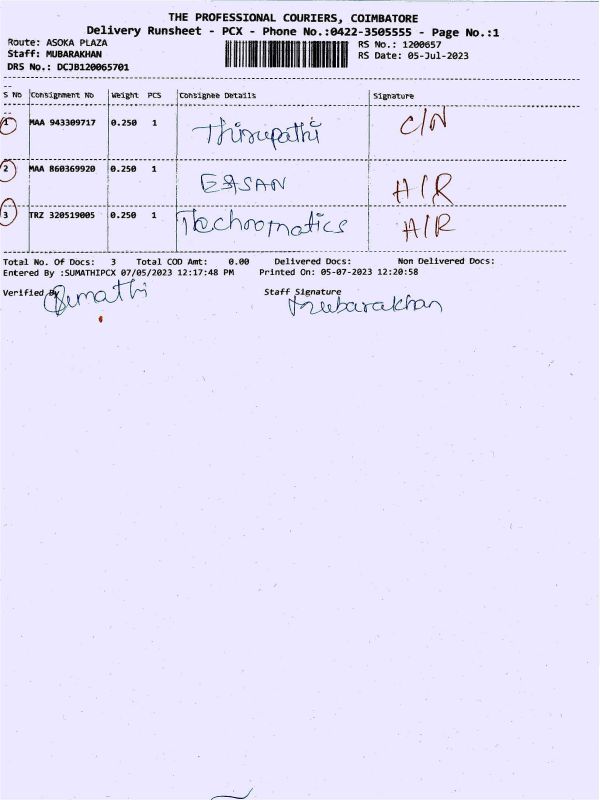 THE PROFESSIONAL COURIERS, COIMBATORE
Delivery Runsheet - PCX - Phone No.:0422-3505555 - Page No.:1
Route: ASOKA PLAZA RS No.: 1200657
Staff: MUBARAKHAN RS Date: 05-Jul-2023
DRS No.: DCJB120065701
S No Consignment No Weight PCS Consignee Details Signature
1 MAA 943309717 0.250 1 Thirupathi C/N
2 MAA 860369920 0.250 1 A/R
3 TRZ 320519005 0.250 1 Techromatics A/R
Total No. Of Docs: 3 Total COD Amt: 0.00 Delivered Docs: Non Delivered Docs:
Entered By :SUMATHIPCX 07/05/2023 12:17:48 PM Printed On: 05-07-2023 12:20:58
Verified By Sumathi Staff Signature
Mubarakhan